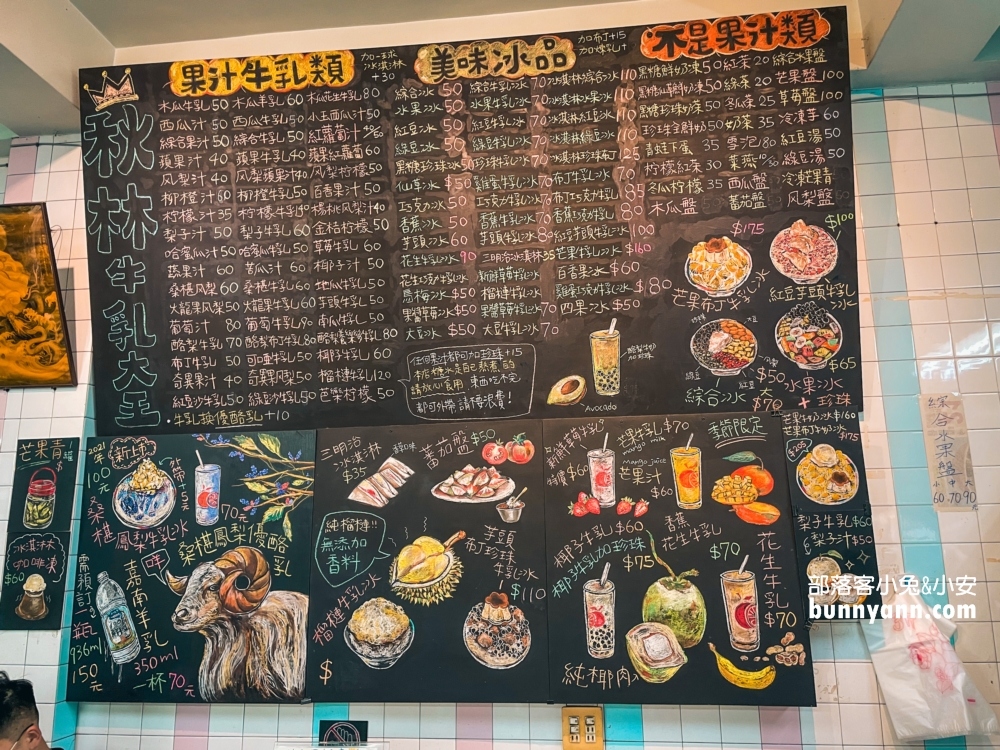 秋林牛乳大王
果汁牛乳類
加一球
冰淇淋
+30
木瓜牛乳 50 木瓜羊乳 60 木瓜花生牛乳 80
西瓜汁 50 西瓜牛乳 50 小玉西瓜汁 50
綜合果汁 50 綜合牛乳 50
蘋果汁 40 蘋果牛乳 40 蘋果紅蘿蔔 60
鳳梨汁 40 鳳梨蘋果汁 40 鳳梨檸檬 50
柳橙汁 60 柳橙牛乳 50 百香果汁 50
檸檬汁 35 檸檬牛乳 40
梨子汁 50 梨子牛乳 60 金桔檸檬 50
哈蜜瓜汁 50 哈蜜瓜牛乳 50 草莓牛乳 60
蔬果汁 60 苦瓜汁 60 椰子汁 50
桑椹鳳梨 60 桑椹牛乳 60 地瓜牛乳 50
火龍果鳳梨 50 火龍果牛乳 60 芋頭牛乳 50
葡萄汁 80 葡萄牛乳 90 南瓜牛乳 50
酪梨牛乳 70 酪梨布丁牛乳 80
布丁牛乳 50 可可牛乳 50 椰子牛乳 60
奇異果汁 40 奇異鳳梨 50 榴槤牛乳 120
紅豆沙牛乳 50 綠豆沙牛乳 50 芭樂檸檬 50
•牛乳換優酪乳+10
美味冰品
加布丁+15
綜合冰 50 綜合牛乳冰 70 冰淇淋綜合冰 110
水果冰 50 水果牛乳冰 70 冰淇淋水果冰 110
紅豆冰 50 紅豆牛乳冰 70 冰淇淋紅豆冰 110
綠豆冰 50 綠豆牛乳冰 70 冰淇淋綠豆冰 110
黑糖珍珠冰 50 珍珠牛乳冰 70 冰淇淋珍珠布丁 125
仙草冰 $50 雞蛋牛乳冰 70 布丁牛乳冰 70
巧克力冰 50 巧克力牛乳冰 70 布丁巧克力牛乳 85
香蕉冰 50 香蕉牛乳冰 70 香蕉巧克力牛乳 80
芋頭冰 60 芋頭牛乳冰 80 紅豆芋頭牛乳冰 100
花生牛乳冰 90 三明治冰淇淋 35 芒果牛乳冰 $160
花生巧克力牛乳冰 新鮮草莓牛乳冰 百香果冰 $60
烏梅冰 $50 榴槤牛乳冰 雞蛋巧克力牛乳冰 $80
果醬草莓冰 $50 果醬草莓牛乳冰 70 四果冰 $50
大豆冰 $50 大豆牛乳冰 70
任何果汁都可加珍珠+15
本店糖水是自己熬煮的
請放心食用 東西吃不完
都可外帶 請勿浪費!
酪梨牛奶
加珍珠
Avocado
不是果汁類
黑糖鮮奶凍 50 紅茶 20 綜合水果盤
綠茶 20 芒果盤 100
黑糖珍珠奶茶 50 冬瓜茶 25 草莓盤 100
珍珠全鮮奶 50 奶茶 35 冷凍芋 60
青蛙下蛋 35 雪泡 80 紅豆湯 50
檸檬紅茶 30 綠豆湯 50
冬瓜檸檬 35 西瓜盤 冷凍芒果青
木瓜盤 蕃茄盤 50 鳳梨盤
$175
芒果布丁牛乳冰
$100
紅豆芋頭牛乳冰
綠豆
紅豆
綜合冰 $50
$70
$65
水果冰
+珍珠
綜合水果盤
小中大
60.70.90
芒果青
冰淇淋
咖啡凍
$60
2021年
新上市
100元
桑椹鳳梨牛乳冰
外帶+5元
70元
桑椹鳳梨優酪乳
咩
需預訂
嘉南羊乳
瓶
936ml
150元
350ml
一杯70元
三明治
冰淇淋
$35
蕃茄盤
$50
純榴槤!!
無添加
香料
榴槤牛乳冰
$
芋頭
布丁珍珠
牛乳冰
$110
新鮮草莓牛乳
特價
$60
芒果牛乳 $70
mango milk
mango juice
芒果汁
$60
季節限定
椰子牛乳 $60
椰子牛乳加珍珠
$75
香蕉
花生牛乳
$70
花生牛乳
$70
純椰肉
芒果牛奶冰 $160
芒果布丁牛乳冰
$175
梨子牛乳 $60
梨子汁 $50
部落客小兔&小安
bunnyann.com